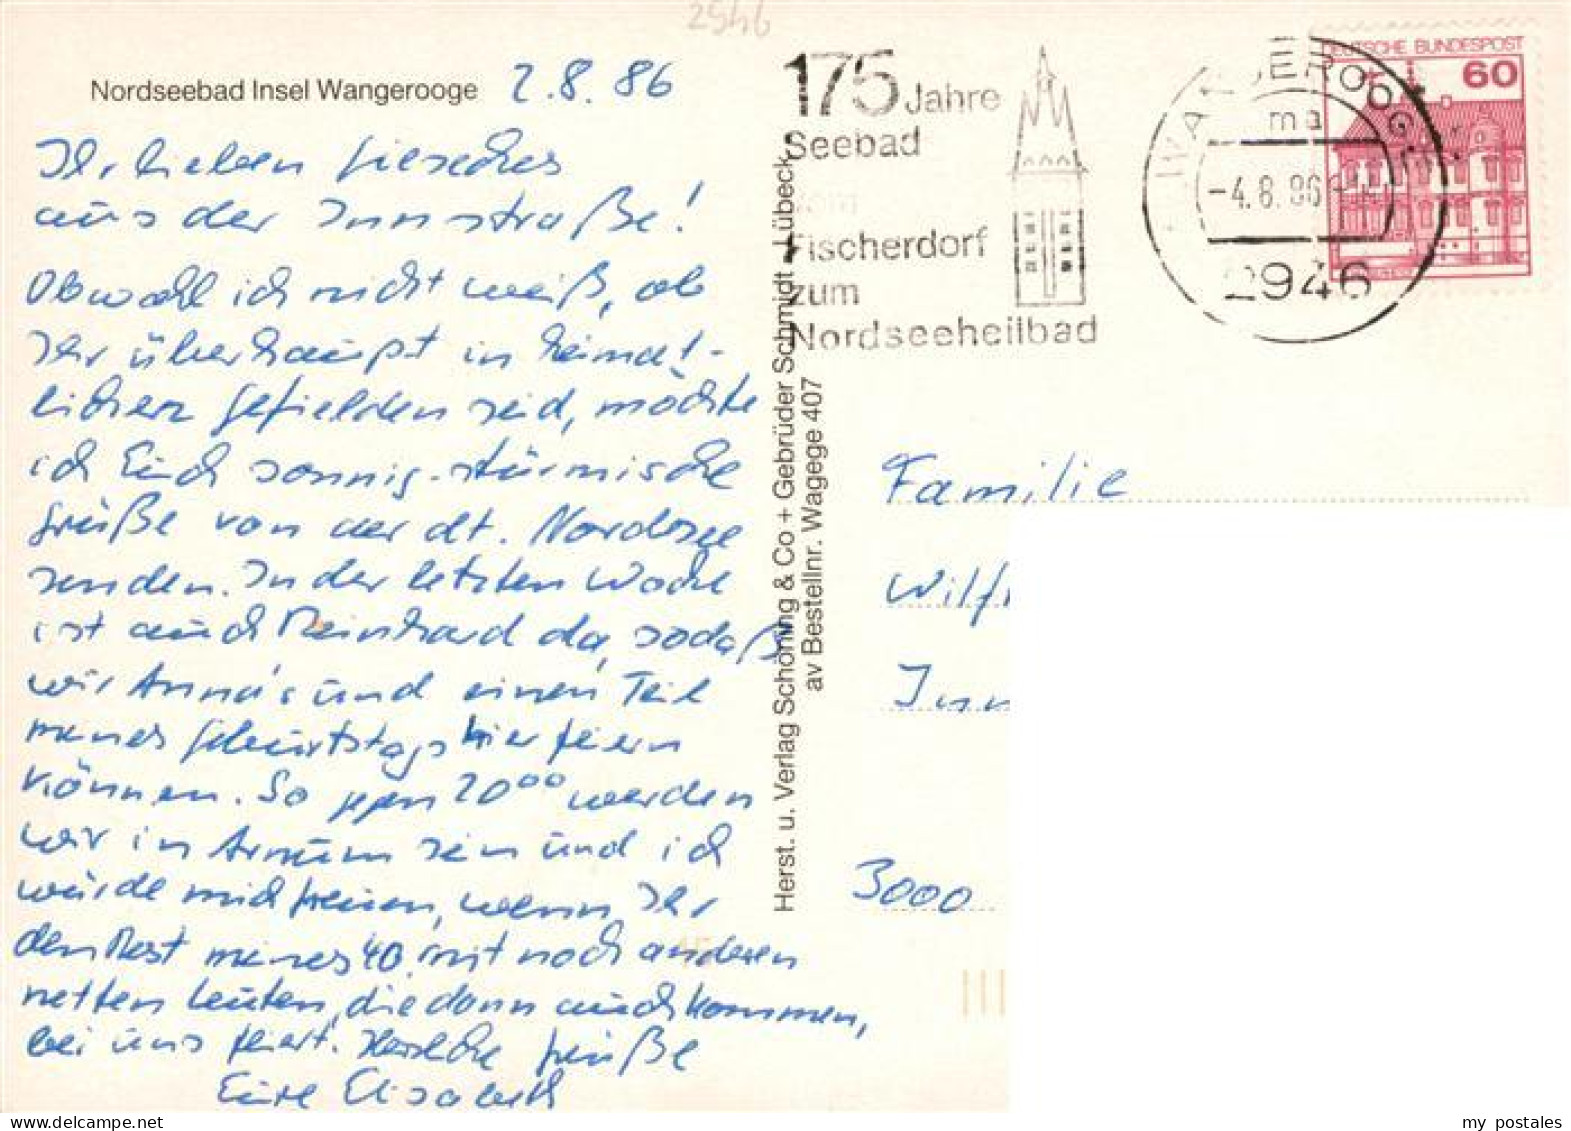 2946
Nordseebad Insel Wangerooge 2.8.86
Ihr lieben
aus der Innstraße!
Obwohl ich nicht weiß, ob
Ihr überhaupt in heimat-
lichen Gefielden seid, möchte
ich Euch sonnig-stürmische
Grüße von der dt. Nordsee
senden. In der letzten Woche
ist auch Reinhard da, sodaß
wir Anna's und einen Teil
meines Geburtstags hier feiern
können. So gegen 20⁰⁰ werden
wir in Arnum sein und ich
würde mich freuen, wenn Ihr
den Rest meines 40. mit noch anderen
netten Leuten, die dann auch kommen,
bei uns feiert. Herzliche Grüße
Eure Elisabeth
Herst. u. Verlag Schöning & Co + Gebrüder Schmidt - Lübeck
av Bestellnr. Wagege 407
175 Jahre
Seebad
vom
Fischerdorf
zum
Nordseeheilbad
WANGEROOGE
ma
-4.8.86
2946
DEUTSCHE BUNDESPOST
60
Familie
Wilf
Inn
3000
my postales